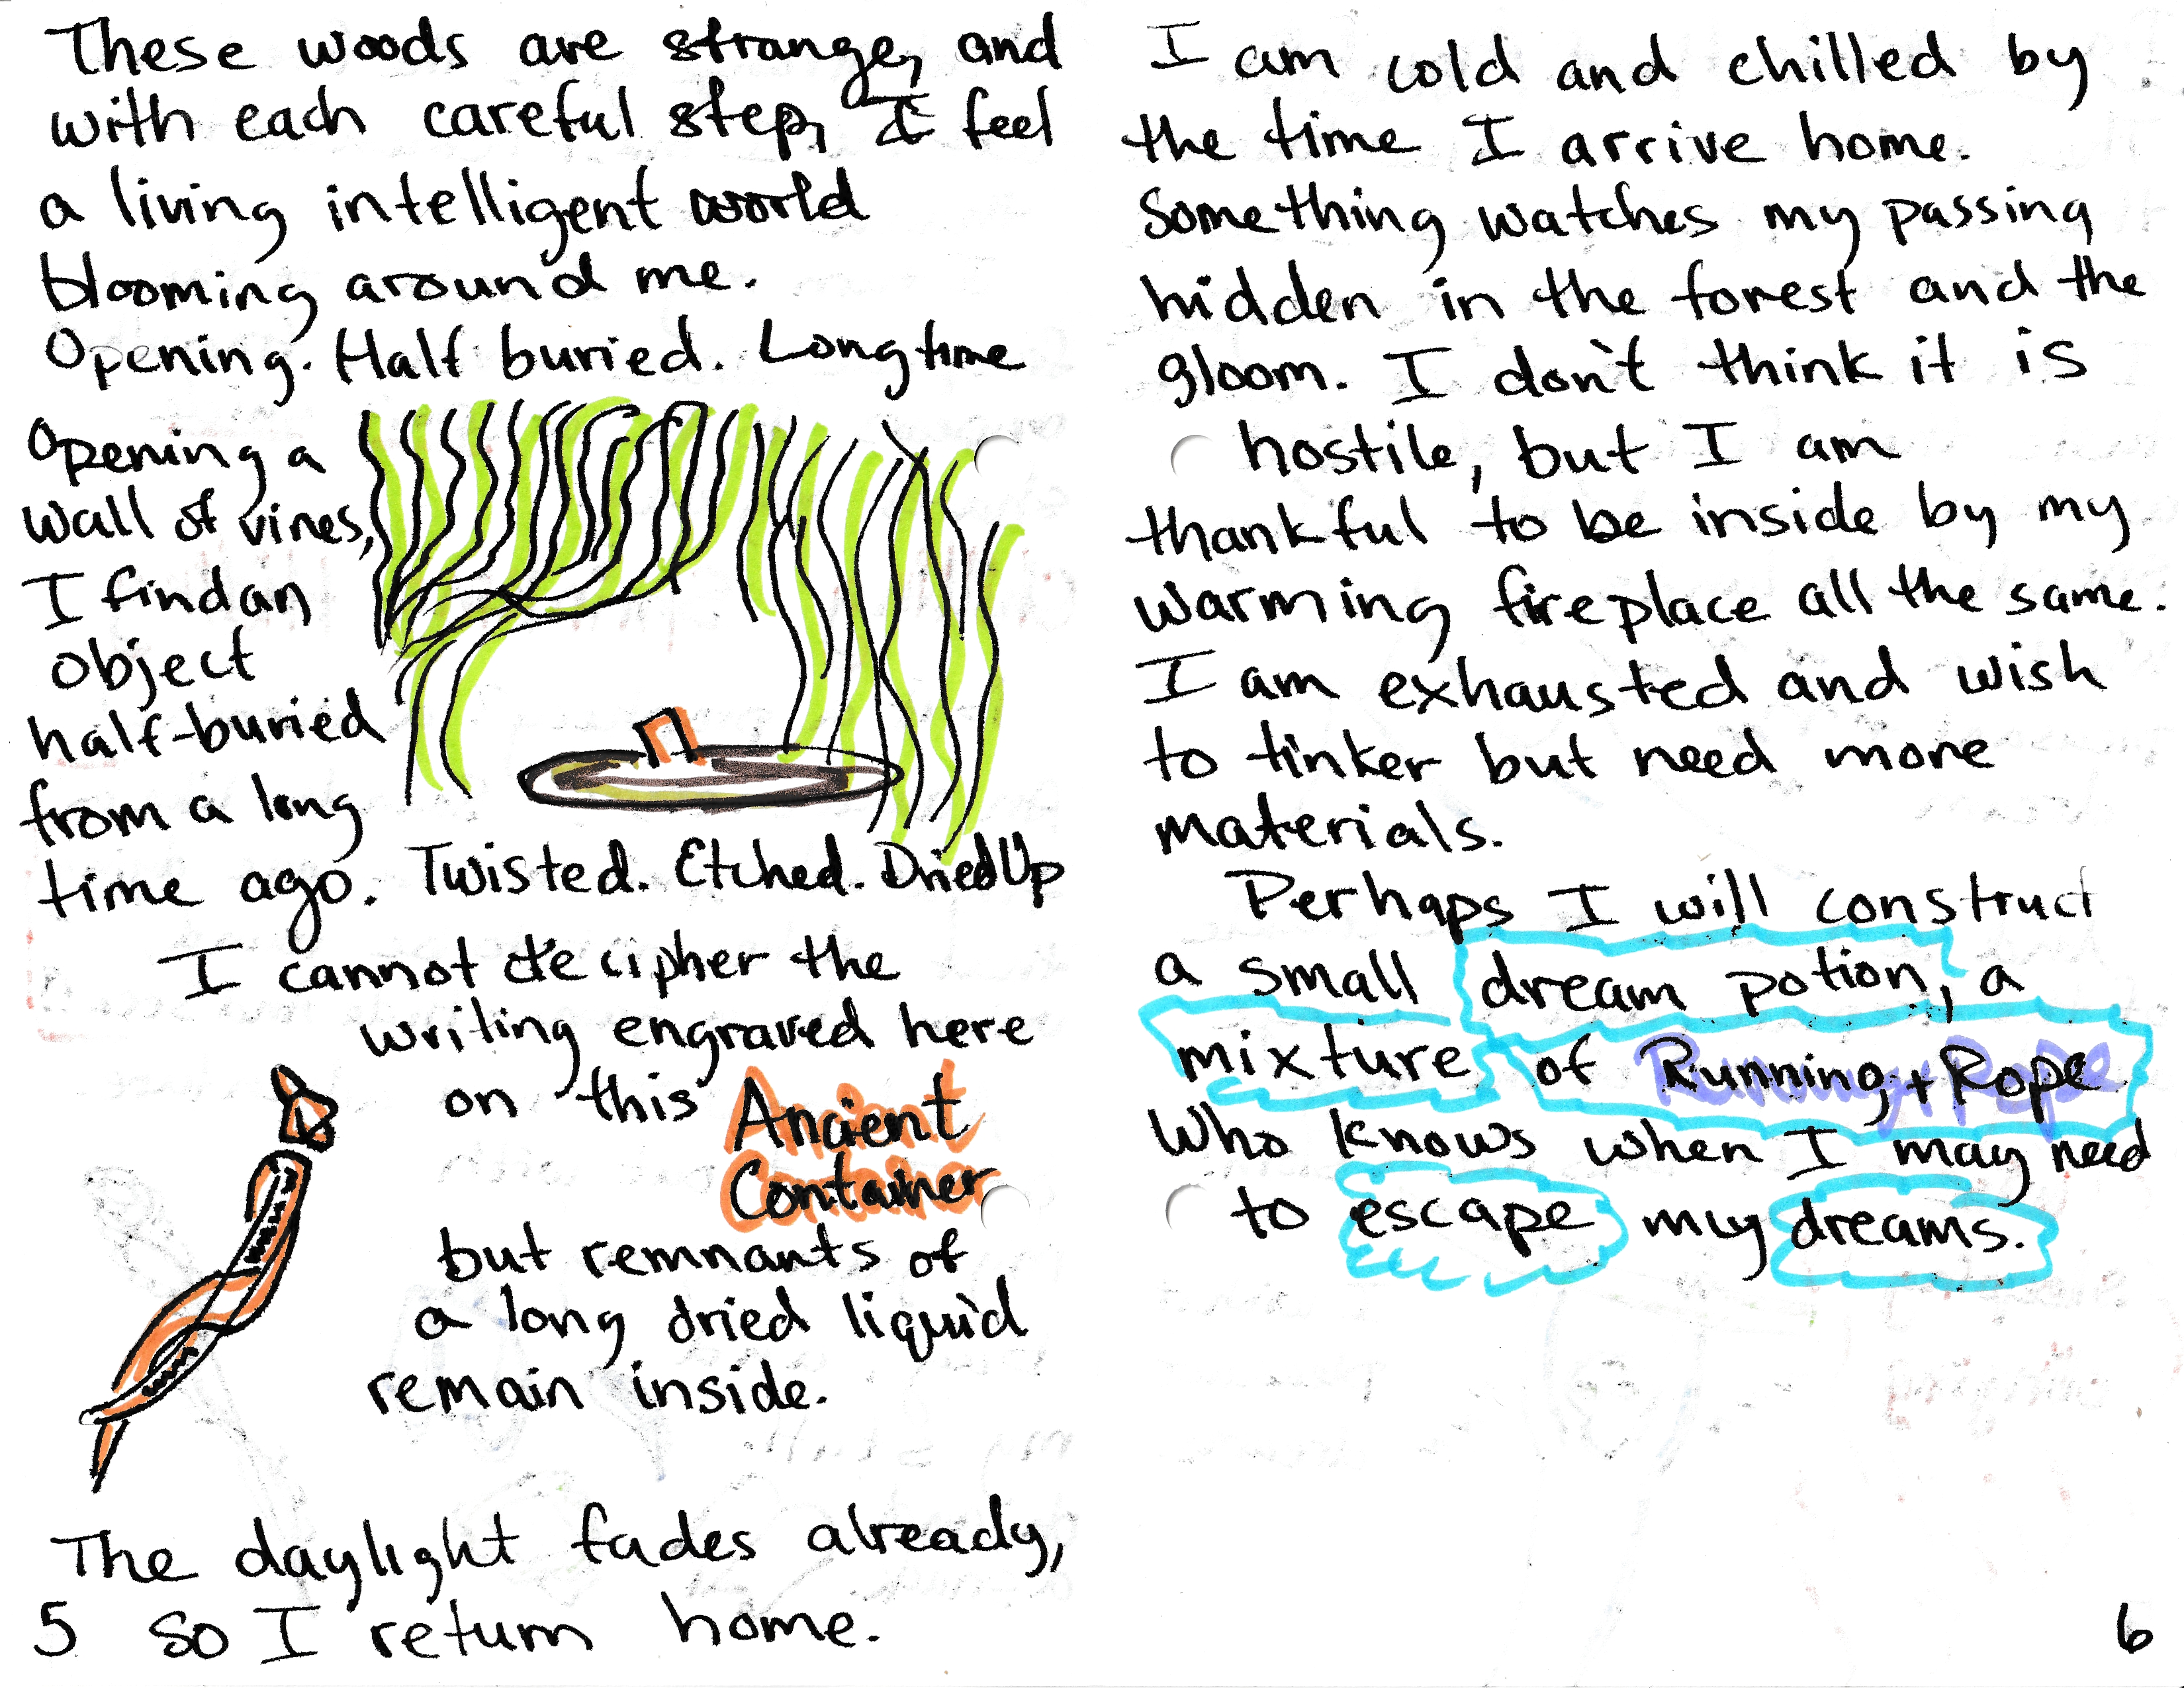 These woods are strange, and
with each careful step, I feel
a living intelligent world
blooming around me.
Opening. Half buried. Long time
Opening a
wall of vines,
I find an
object
half-buried
from a long
time ago. Twisted. Etched. Dried Up
I cannot decipher the
writing engraved here
on this Ancient
Container
but remnants of
a long dried liquid
remain inside.
The daylight fades already,
5 so I return home.
I am cold and chilled by
the time I arrive home.
Something watches my passing
hidden in the forest and the
gloom. I don't think it is
hostile, but I am
thankful to be inside by my
warming fireplace all the same.
I am exhausted and wish
to tinker but need more
materials.
Perhaps I will construct
a small dream potion, a
mixture of Running + Rope
Who knows when I may need
to escape my dreams.
6